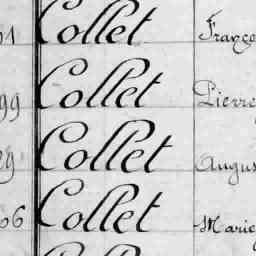 Collet Franço
99 Collet Pierre
Collet Augus
Collet Marie